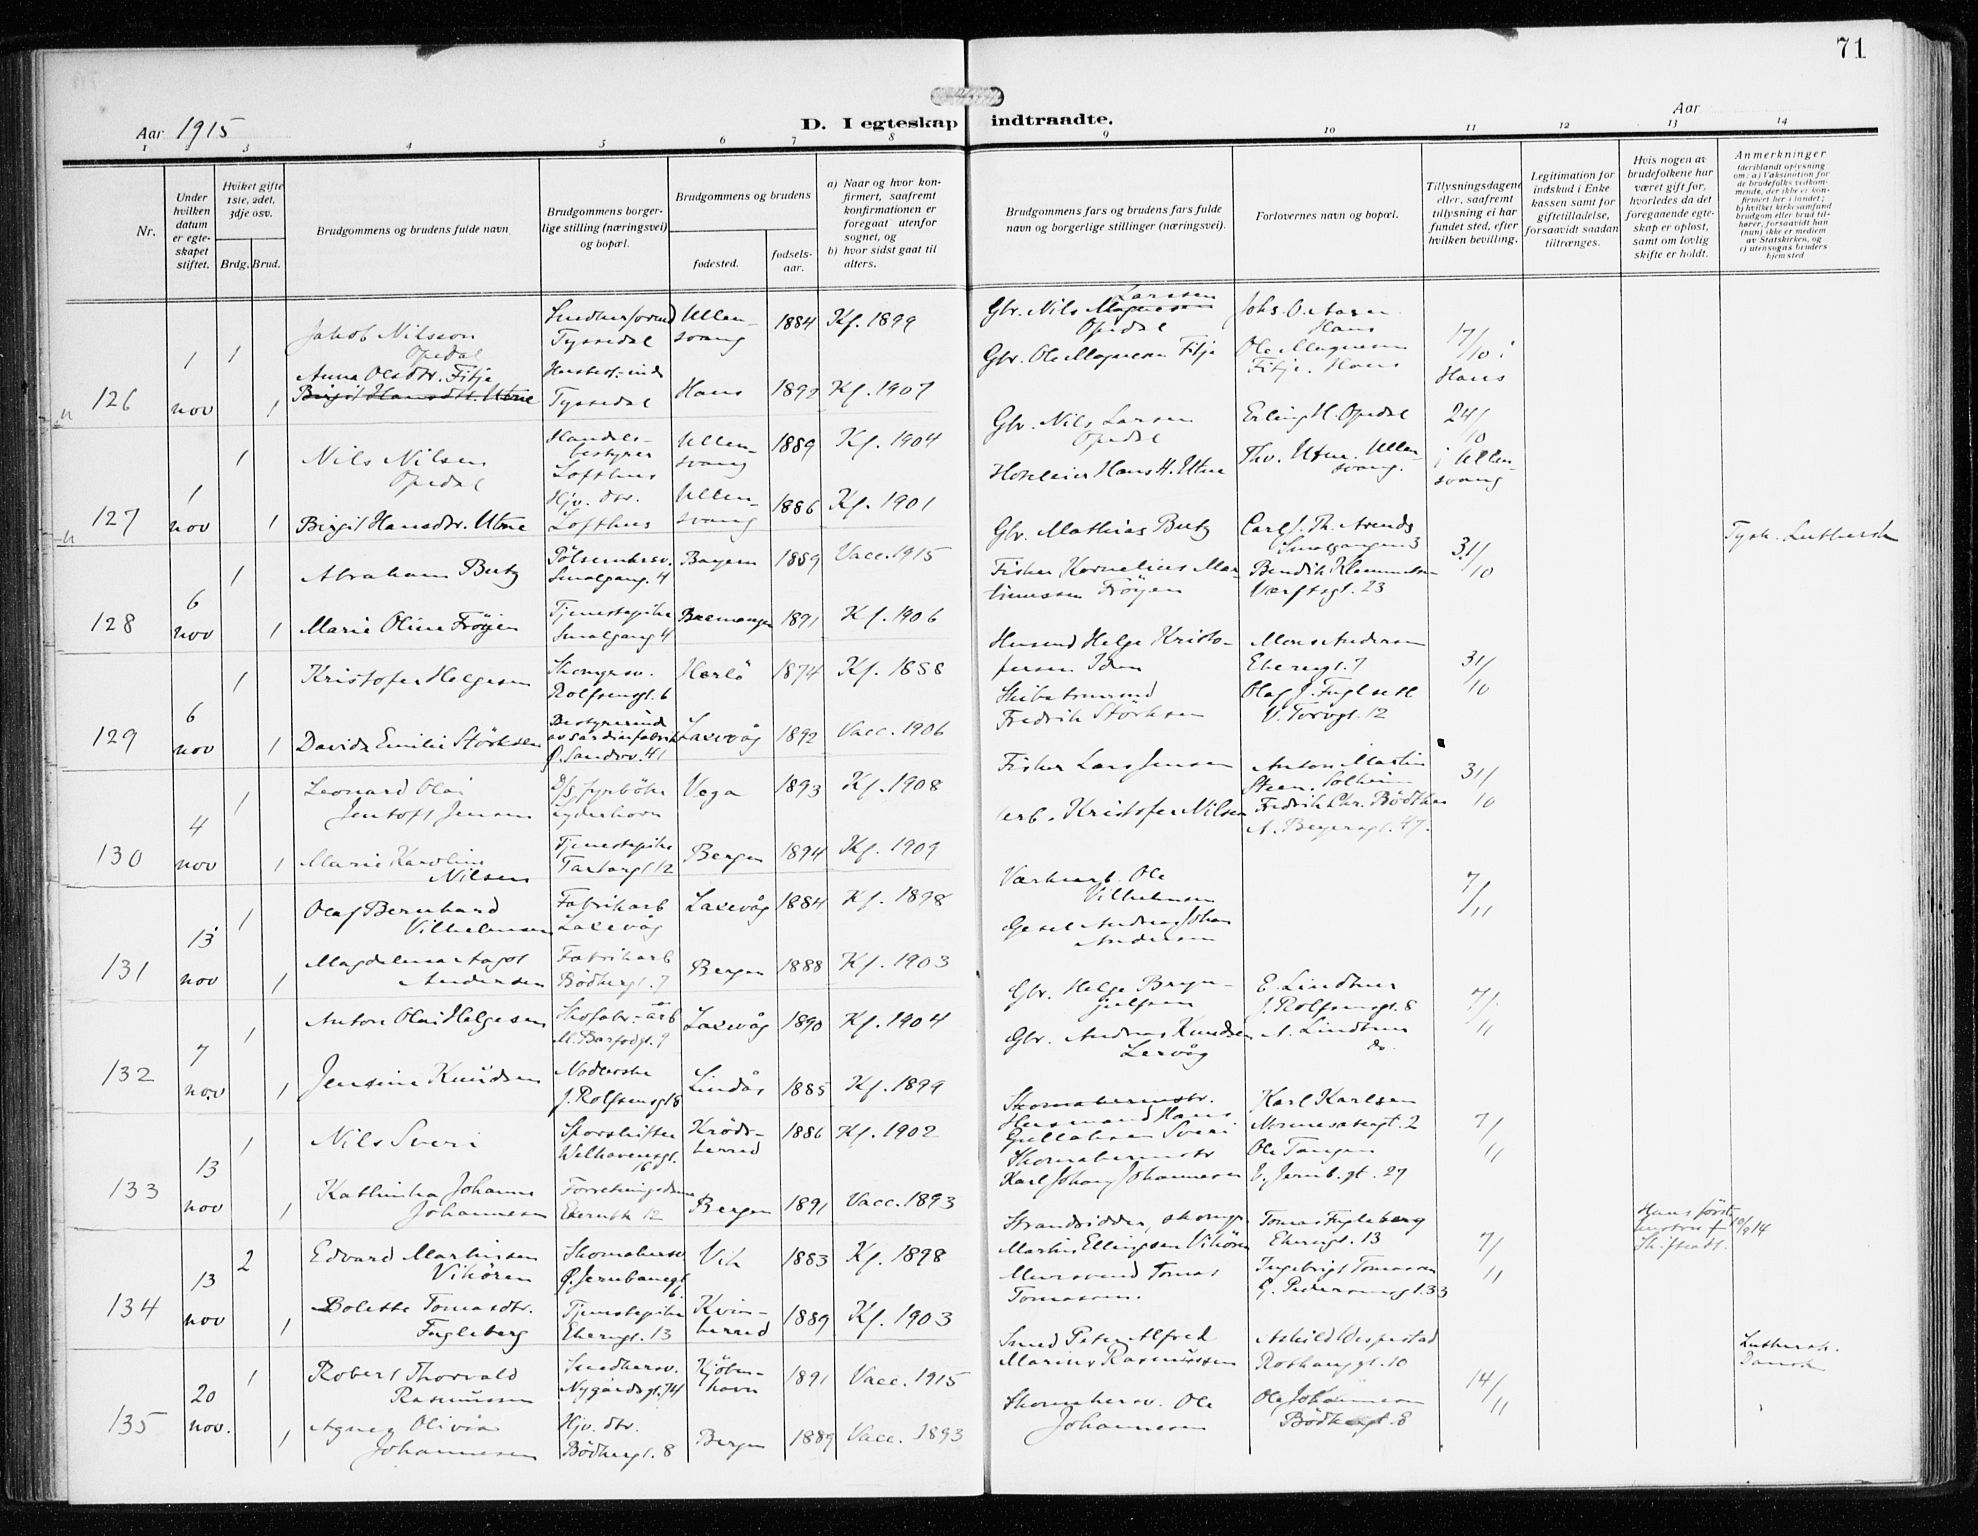 71
D. I egteskap indtraadte.
Aar 1915
Aar
1 2 3 4 5 6 7 8 9 10 11 12 13 14
Nr.
Under hvilken datum er egteskapet stiftet.
Hvilket gifte 1ste, 2det, 3dje osv.
Brdg. Brud.
Brudgommens og brudens fulde navn
Brudgommens borgerlige stilling (næringsvei) og bopæl.
Brudgommens og brudens
fødested.
fødselsaar.
a) Naar og hvor konfirmert, saafremt konfirmationen er foregaat utenfor sognet, og
b) hvor sidst gaat til alters.
Brudgommens fars og brudens fars fulde navn og borgerlige stillinger (næringsvei).
Forlovernes navn og bopæl.
Tillysningsdagene eller, saafremt tillysning ei har fundet sted, efter hvilken bevilling.
Legitimation for indskud i Enkekassen samt for giftetilladelse, forsaavidt saadan tiltrænges.
Hvis nogen av brudefolkene har været gift før, hvorledes da det foregaaende egteskap er opløst, samt om lovlig skifte er holdt.
Anmerkninger
(deriblandt oplysning om: a) Vaksination for de brudefolks vedkommende, der ikke er konfirmert her i landet; b) hvilket kirkesamfund brudgom eller brud tilhører, forsaavidt han (hun) ikke er medlem av Statskirken, og c) utensogns bruders hjemsted
126 1 nov 1 Jakob Nilsson Opedal Tyssedal Ullensvang 1884 Kf. 1899 Gbr. Nils Magnesen Larssen Opedal
1 Anna Olsdtr. Fitje Birgit Hansdtr. Utne Tyssedal Hans 1892 Kf. 1907 Gbr. Ole Magnesen Fitje Ole Magnesen Fitje. Hans 17/10 i Hans
127 1 nov 1 Nils Nilsen Opedal Handelsbestyrer Lofthus Ullensvang 1889 Kf. 1904 Gbr. Nils Larsen Opedal Erling H. Opedal 24/10 i Ullensvang
1 Birgit Hansdtr. Utne Hjv. dtr. Lofthus Ullensvang 1886 Kf. 1901 Hoteleier Hans H. Utne Thv. Utne. Ullensvang.
128 6 nov 1 Abraham Butz Pølsemakersv. Smalgang. 4 Bayern 1889 Vacc. 1915 Gbr. Mathias Butz Carl J. Th. Arends Smalgangen 3 31/10 Tysk. Luthersk
1 Marie Oline Frøyen Tjenestepike Smalgang 4 Bremanger 1891 Kf. 1906 Fisker Kornelius Martinussen Frøyen Bendik Klemmetsen Verftsgt. 23
129 6 nov 1 Kristofer Helgesen Skomagersv. Rolfsensgt. 6 Herlø 1874 Kf. 1888 Husmd Helge Kristofersen Mons Andersen Ekerengt. 7 31/10
1 Davida Emilie Størksen Bestyrerinde av sardinfabrik Ø. Sandsv. 41 Laxevåg 1892 Vacc. 1906 Skibstømrmd Fredrik Størksen Olaf J. Fuglseth V. Torvgt. 12
130 4 nov 1 Leonard Olai Jentoft Jensen D/s fyrbøter Vega 1893 Kf. 1908 Fisker Lars Jensen Anton Martin Steen. Solheim 31/10
1 Marie Karoline Nilsen Tjenestepike Tartargt 12 Bergen 1894 Kf. 1909 arb. Kristofer Nilsen Fredrik Chr. Bødtker A. Beyersgt. 47.
131 13 nov 1 Olaf Bernhard Vilhelmsen Fabrikarb Laxevåg Laxevåg 1884 Kf. 1898 Verksarb. Ole Vilhelmsen 7/11
1 Magdelena Aagot Andersen Fabrikarb Bødkergt. 7 Bergen 1888 Kf. 1903 Gesel Andreas Johan Andersen
132 7 nov 1 Anton Olai Helgesen Skofabr.-arb M. Barfodgt. 9 Laxevåg 1890 Kf. 1904 Gbr. Helge Brynjulfsen E. Lindtner J. Rolfsensgt. 8 7/11
1 Jensine Knudsen Noderske J. Rolfsensgt 8 Lindås 1885 Kf. 1899 Gbr. Andreas Knudsen Lervåg A. Lindtner do.
133 13 nov 1 Nils Sveri Storskifter Welhavensgt. Krødsherred 1886 Kf. 1902 Skomakermstr. Husmand Hans Gullaksen Sveri Karl Karlsen 7/11
1 Kathinka Johanne Johannesen Forretningsdame Bergen 1891 Vacc. 1893 Skomakermstr Karl Johan Johannesen Ole Tangen V. Jernb.gt. 27
134 13 nov 2 Edvard Martinsen Vikøren Skomakersv Ø. Jernbanegt 6. Vik 1883 Kf. 1898 Martin Ellingsen Vikøren Tomas Fugleberg Ekrengt. 13 7/11 Hans første hustru † 10/9 14
1 Bolette Tomasdtr. Fugleberg Tjenestepike Ekrengt. 13 Kvinherred 1889 Kf. 1903 Murersvend Tomas Tomassen. Ingebrigt Tomassen G. Pedersensgt. 33
135 20 nov. 1 Robert Thorvald Rasmussen Smedkersv. Nygårdsgt. 74 Kjøbenhavn 1891 Vacc. 1915 Smed Peter Alfred Marius Rasmussen Askild Vespestad 14/11 Luthersk. Dansk
1 Agnes Olivia Johannesen Hjv. dtr. Bødkergt. 8 Bergen 1889 Vacc. 1893 Skomakersv. Ole Johannesen Ole Johannesen Bødkergt. 8